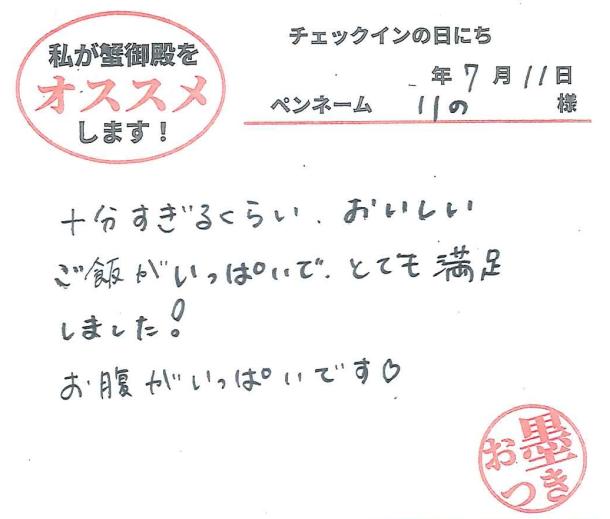 私が蟹御殿を
オススメ
します！
チェックインの日にち
年7月11日
ペンネーム りの 様
十分すぎるくらい、おいしい
ご飯がいっぱいで、とても満足
しました！
お腹がいっぱいです♡
お墨
つき